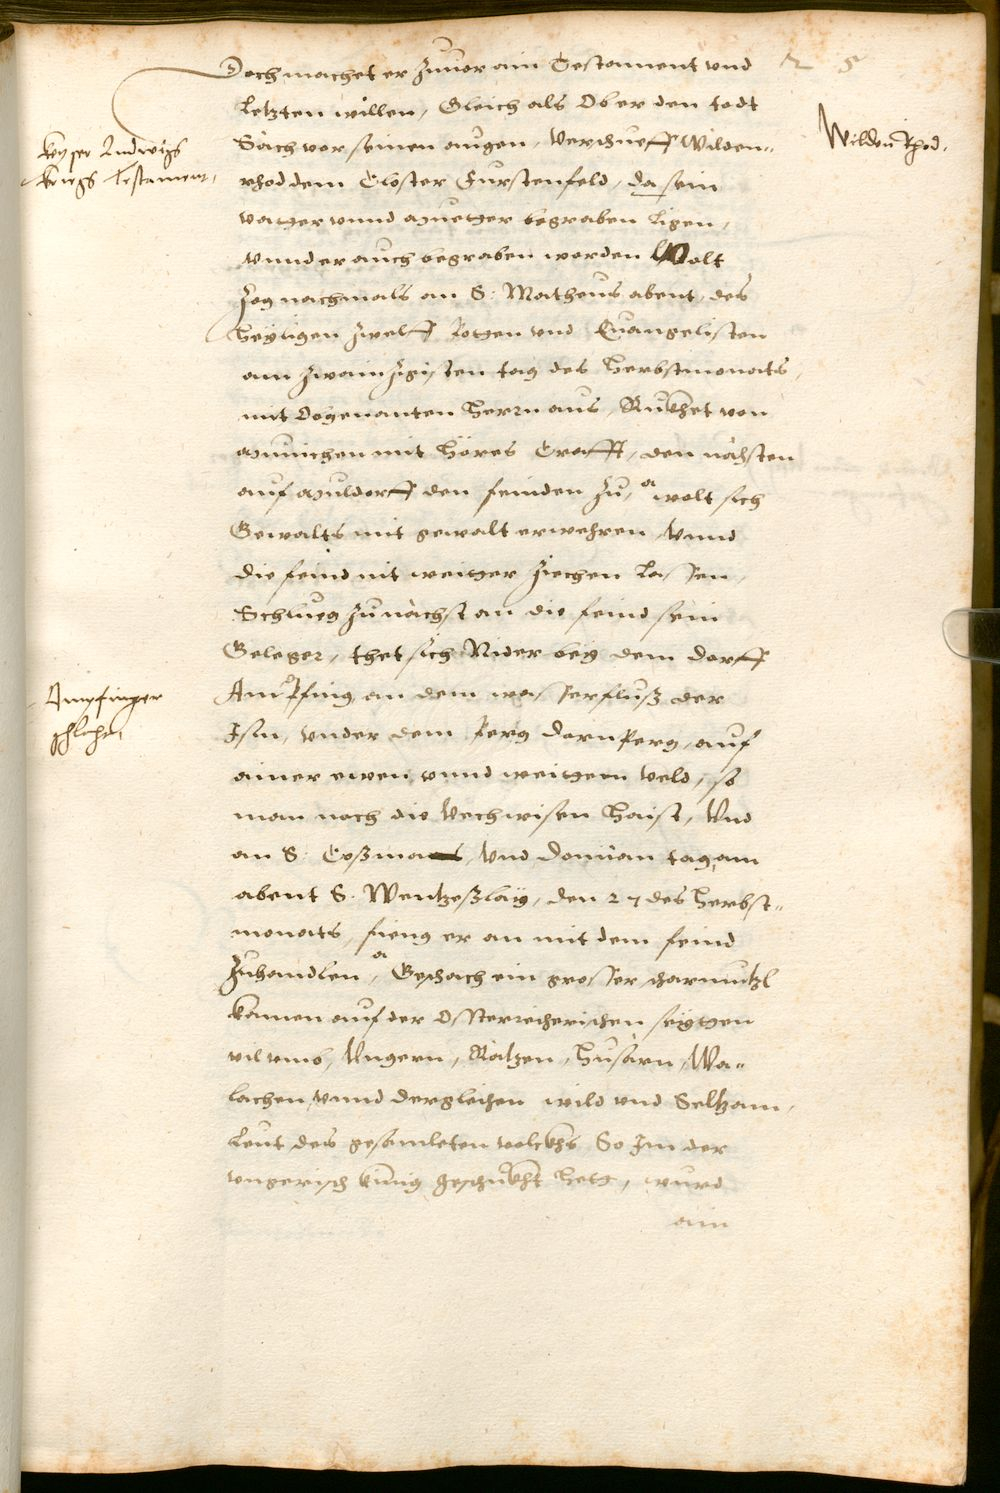 Doch machet er zuuor ain Testament vnd
letzten willen, Gleich als Ob er den todt
Säch vor seinen augen, Verschueff Wilden-
rhod dem Closter Furstenfeld, da sein
vatter vnnd muetter begraben Ligen,
vnnd er auch begraben werden Wolt
zog nachmals an S: Matheus abent, des
heyligen zwelff Potten vnd Euangelisten
am zwainzigisten tag des Herbstmonats,
mit Obgenanten Herrn aus, Rukhet von
München mit Höres Crafft, den nächsten
auf Muldorff den feinden zu, wolt sich
Gewalts mit gewalt erwehren, Vnnd
die feind nit weitter ziechen Lassen,
Schlueg zunächst an die feind sein
Geleger, thet sich Nider bey dem dorff
Ampfing an dem wasserfluß der
Isin, vnder dem Perg dornperg, auf
ainer ewen vnnd weittem veld, so
man noch die Vechwisen Haist, Vnd
an S. Coßmas, Vnd Damian tag, am
abent S. Wentzeßlay, den 27 des Herbst-
monats, fieng er an mit dem feind
Zuhandlen, Geschach ein grosser scharmutzl
kamen auf der Ossterreicherischen seytten
vil vmb, Vngern, Ratzen, Husärn, Wa-
lachen, vnnd dergleichen wild vnd Seltzam,
Leut des gesamleten volckhs So Im der
vngerisch künig geschickht Hett, wurd
ain
Keyser Ludwigs
kriegs Testament,
Wildenrhod.
Ampfinger
schlacht